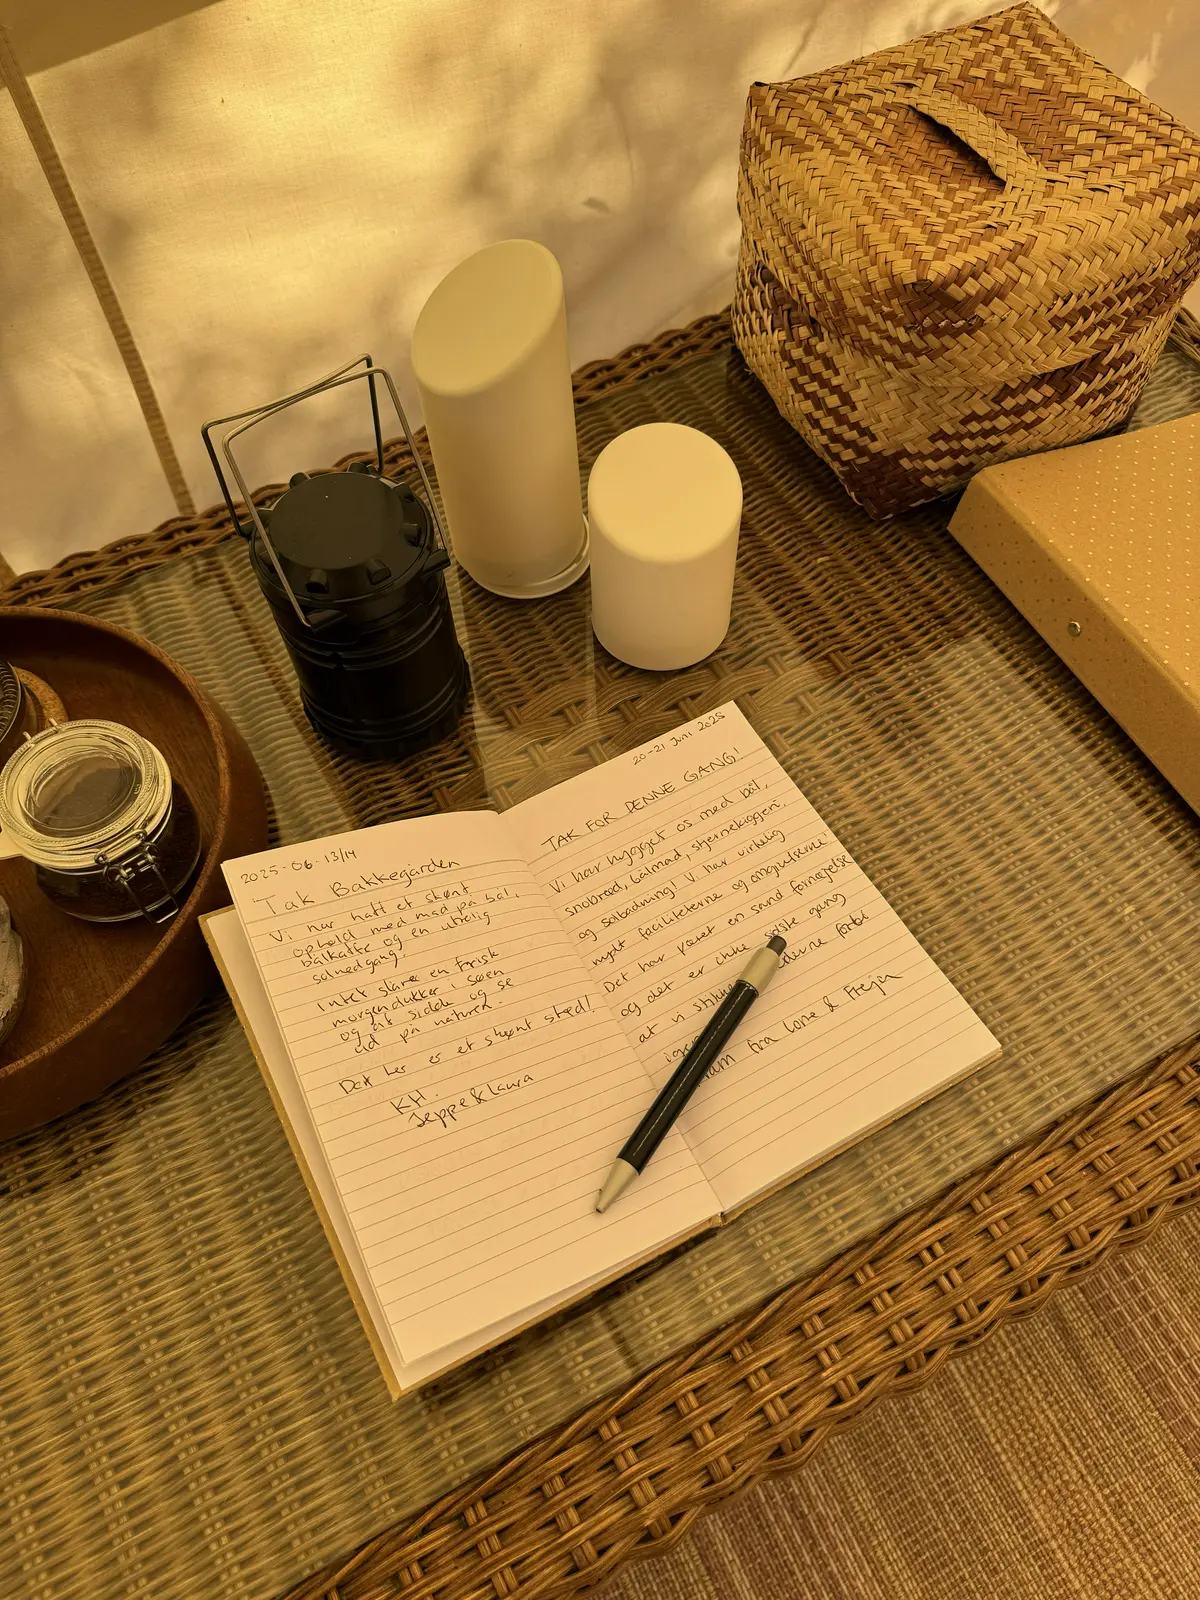 2025-06-13/14
Tak Bakkegården
Vi har haft et skønt
ophold med mad på bål,
bålkaffe og en utrolig
solnedgang!
Intet slår en frisk
morgendukker i søen
og at sidde og se
ud på naturen.
Det her er et skønt sted!
KH.
Jeppe & Laura
20-21 Juni 2025
TAK FOR DENNE GANG!
Vi har hygget os med bål,
snobrød, bålmad, stjernekiggeri,
og solbadning! Vi har virkelig
nydt faciliteterne og omgivelserne!
Det har været en sand fornøjelse
og det er ikke sidste gang
at vi stikke forbi
fra Lone & Freja